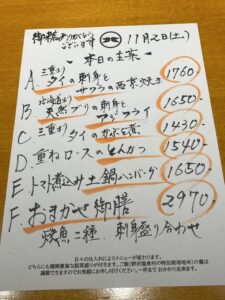 11月2日(土)
~ 本日の主菜 ~
A. 三重(水) タイの刺身と
サワラの西京焼き 1760-
B. 北海道(水) 天然ブリの刺身と
アジフライ 1650-
C. 三重(水) タイのかぶと煮 1430-
D. 重ねロースのとんかつ 1540-
E. トマト煮込み土鍋ハンバーグ 1650-
F. おまかせ御膳 2970-
焼魚二種 刺身盛り合わせ
日々の仕入れによりメニューが変わります。